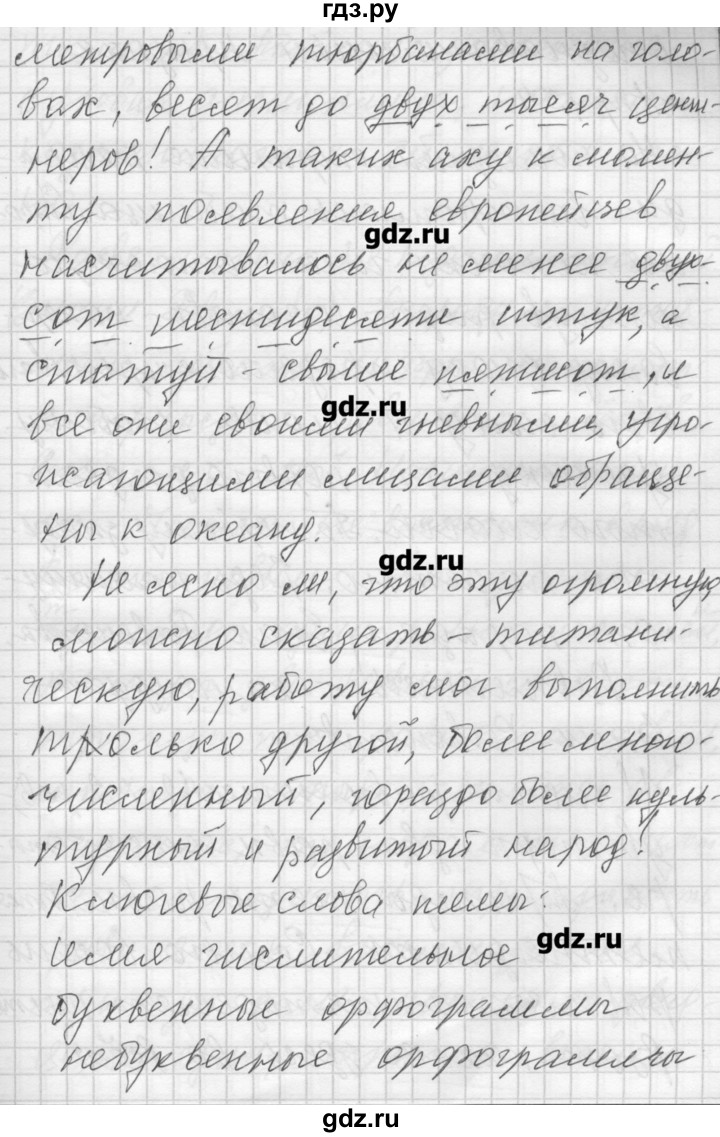 гдз.ру
метровыми тюрбанами на голо-
вах, весят до двух тысяч цент-
неров! А таких аху к момен-
ту появления европейцев
gdz.ru
насчитывалось не менее двух-
сот шестидесяти штук, а
статуй - свыше пятисот, и
gdz.ru
все они своими гневными, угро-
жающими лицами обраще-
ны к океану.
gdz.ru
Не ясно ли, что эту огромную,
можно сказать - титани-
ческую, работу мог выполнить
только другой, более много-
численный, гораздо более куль-
турный и развитый народ!
Ключевые слова темы:
gdz.ru
имя числительное
буквенные орфограммы
небуквенные орфограммы
gdz.ru